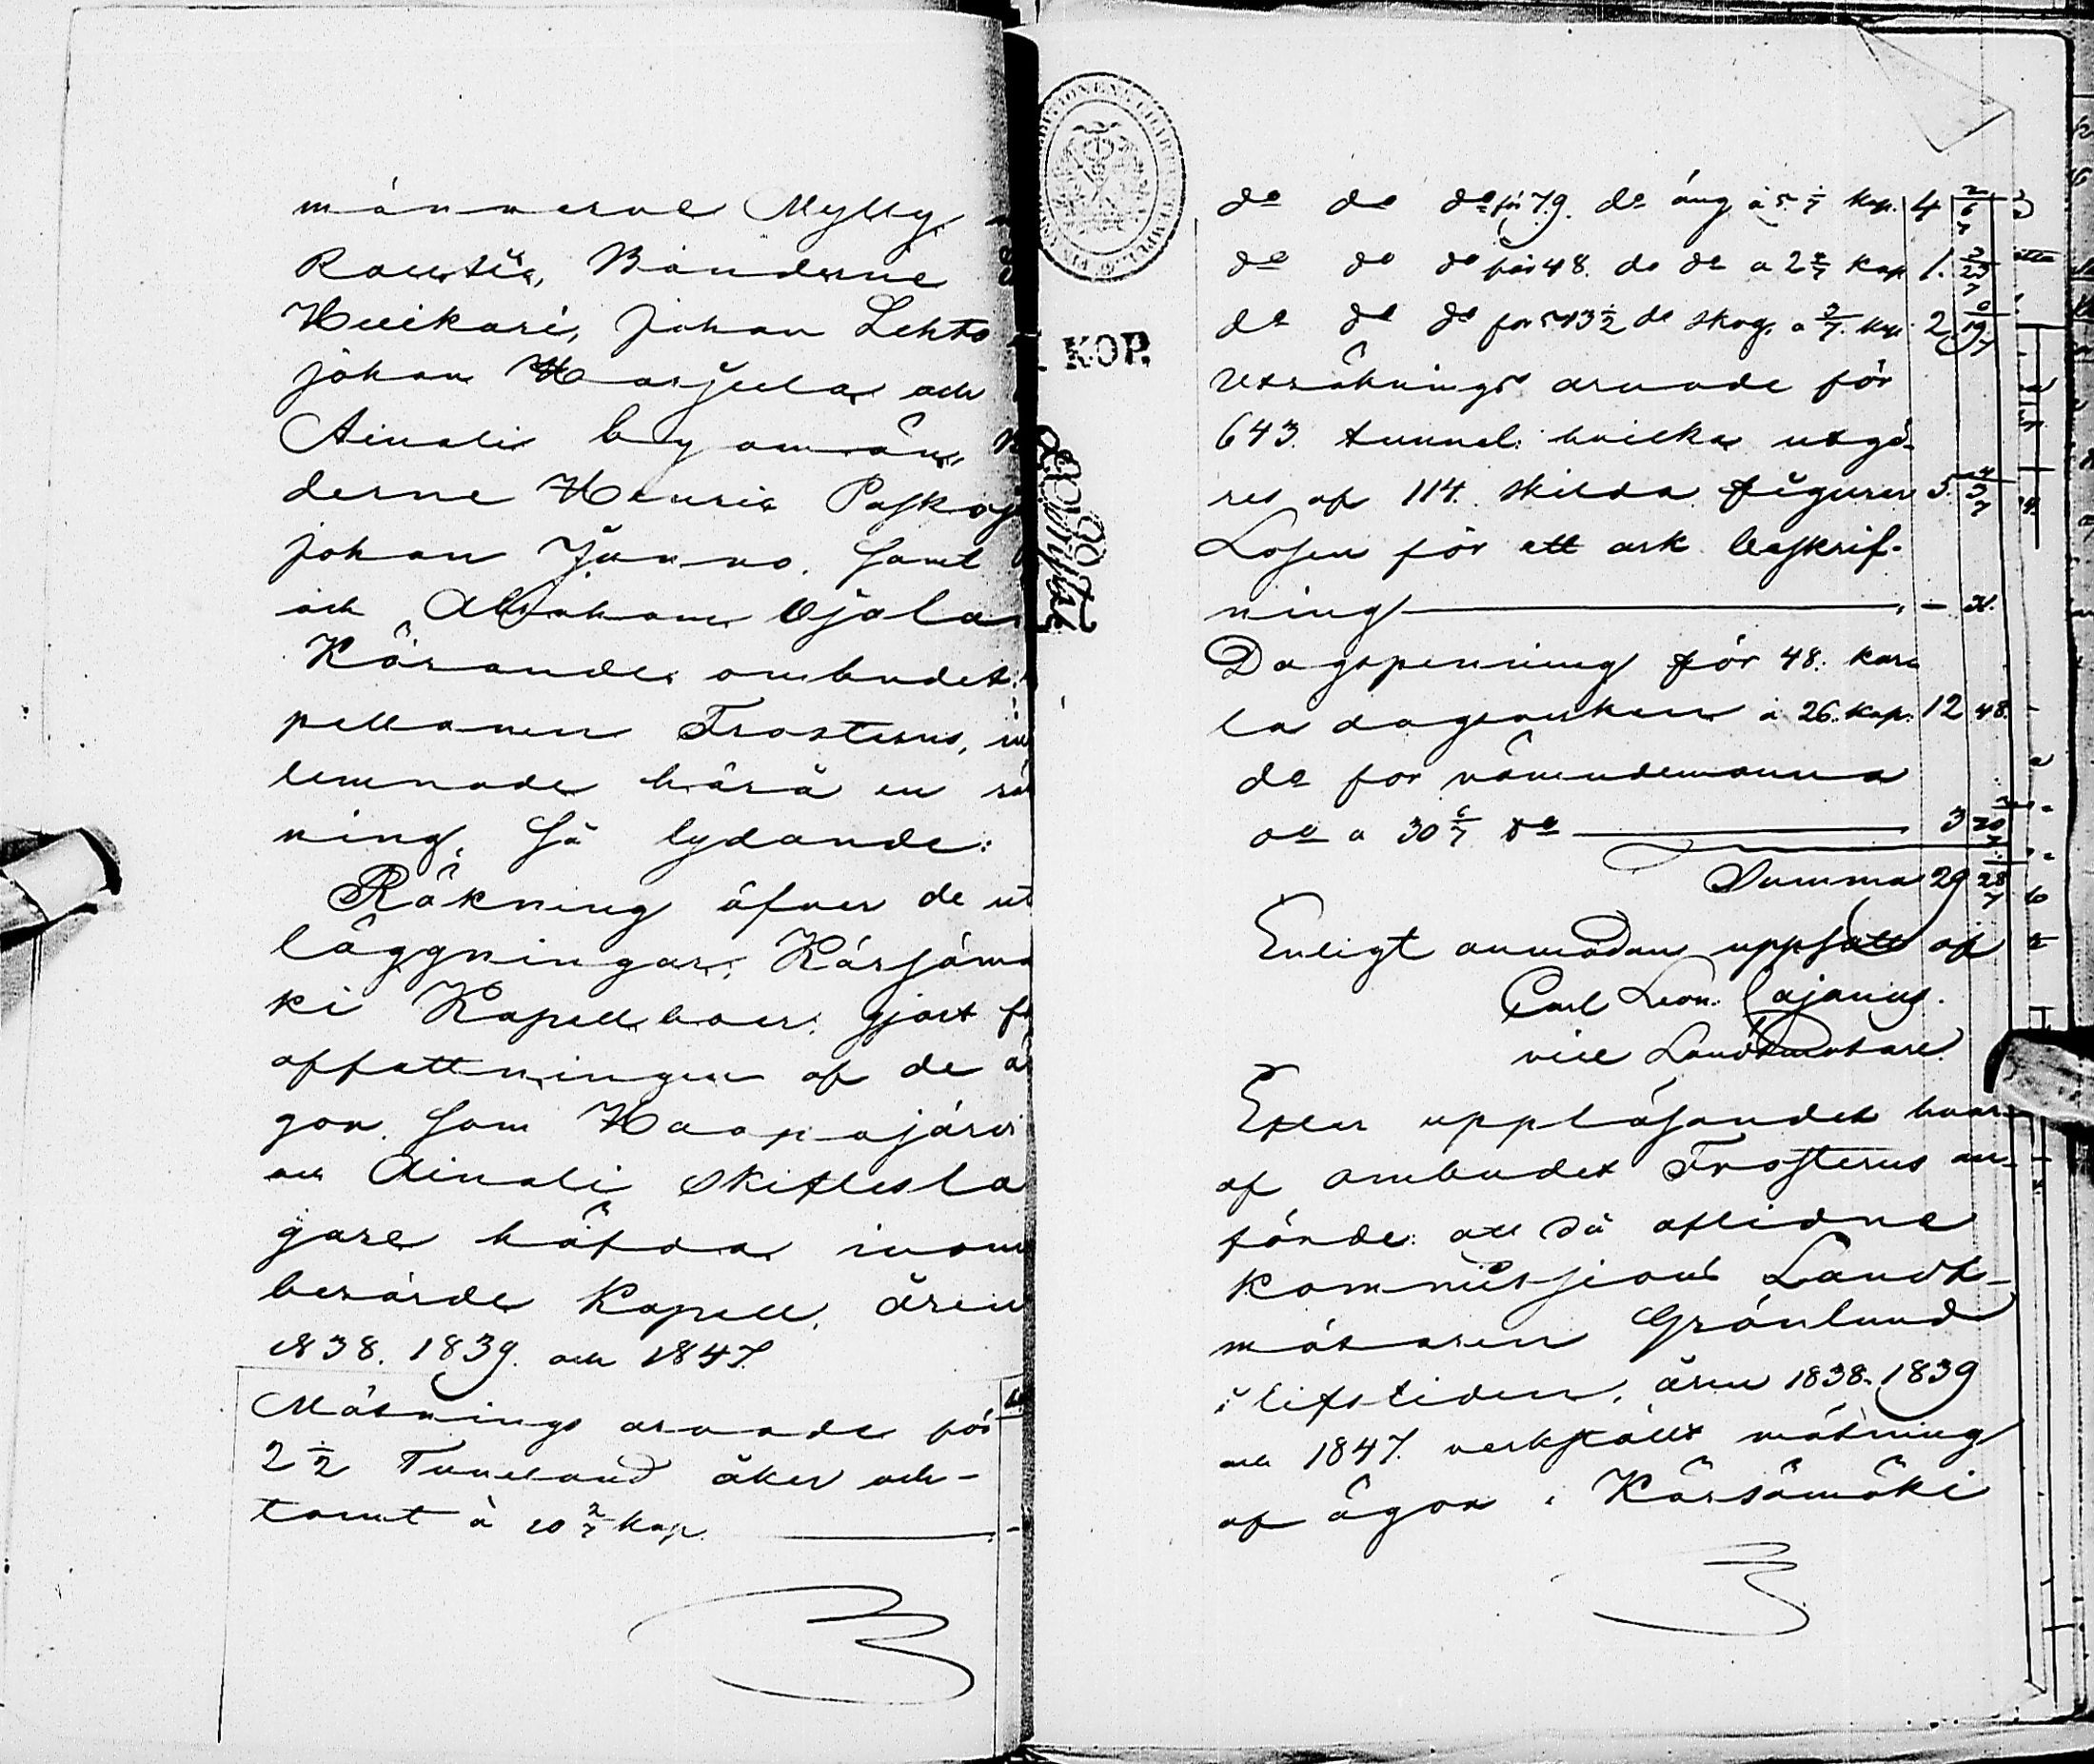 männerne Mylly
Rautia, Bönderne
Huikari, Johan Lehto
Johan Harjula och
Ainali by omän,
derne Henric Paskoj
Johan Junno. Samt
och Abraham Ojala
Kärande ombudet
pellanen Frosterus, in
lemnade härå en rä
ning, så lydande:
Räkning öfver de ut
läggningar, Kärsämä
ki Kapellboer. gjort f
affattningen af de ä
gor. som Haapajärvi
och Ainali skifteslа
gare häfda inom
berörde Kapell, åren
1838. 1839. och 1847.
Mätnings arvode för
2 1/2 Tunneland åker och
tomt à 10 2/7 kop.
KOP.
do do do för 79. do äng à 5 1/7 kop. 4 6 2/7
do do do för 48. do do a 2 4/7 kop 1. 23 3/7
do do do för 513 1/2 do skog, a 3/7. kop. 2 19
Uträknings arvode för
643. tunnel. hvilka utgö-
res af 114. skilda figurer 5.
Lösen för ett ark beskrif-
ning
Dagspenning för 48. kara
la dagsverken à 26. kop. 12 48.
do for nämndemanna
do a 30 6/7 do 3
Summa 29 28
Enligt anmodan uppsatt af
Carl Leon. Cajanus.
vice Landtmätare.
Efter uppläsandet hvar
af ombudet Frosterus an-
förde: att då aflidne
Kommissions Landt-
mätaren Grönlund
i lifstiden, åren 1838. 1839
och 1847. verkställt mätning
af ägor i Kärsämäki